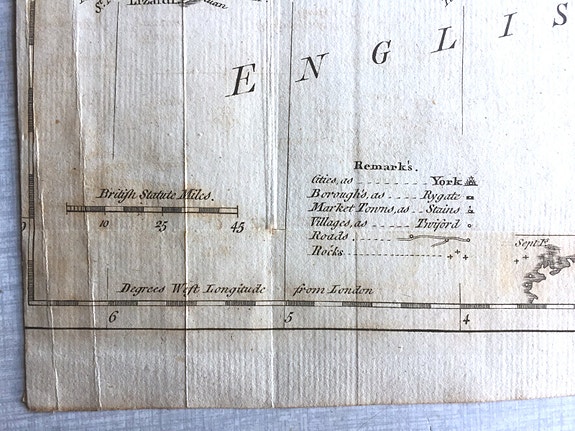 Lizard
ENGLIS
Remark's.
Cities, as York
Borough's, as Rygate
Market Towns, as Stains
Villages, as Twiford
Roads
Rocks
British Statute Miles.
10 25 45
Sept I.
Degrees West Longitude from London
6 5 4